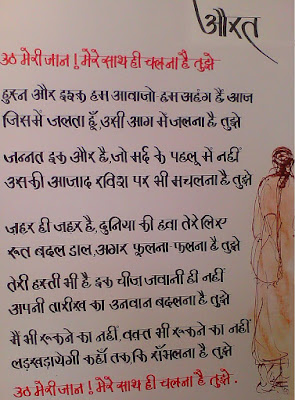 औरत
उठ मेरी जान! मेरे साथ ही चलना है तुझे
हुस्न और इश्क हम आवाजो-हम अहंग हैं आज
जिसमें जलता हूँ, उसी आग में जलना है तुझे
जन्नत इक और है, जो मर्द के पहलू में नहीं
उसकी आजाद रविश पर भी मचलना है तुझे
जहर ही जहर है, दुनिया की हवा तेरे लिए
रूत बदल डाल, अगर फूलना-फलना है तुझे
तेरी हस्ती भी है इक चीज जवानी ही नहीं
अपनी तारीख का उनवान बदलना है तुझे
मैं भी रूकने का नहीं, वक्त भी रूकने का नहीं
लड़खड़ायेगी कहाँ तक, कि सँभलना है तुझे
उठ मेरी जान! मेरे साथ ही चलना है तुझे.